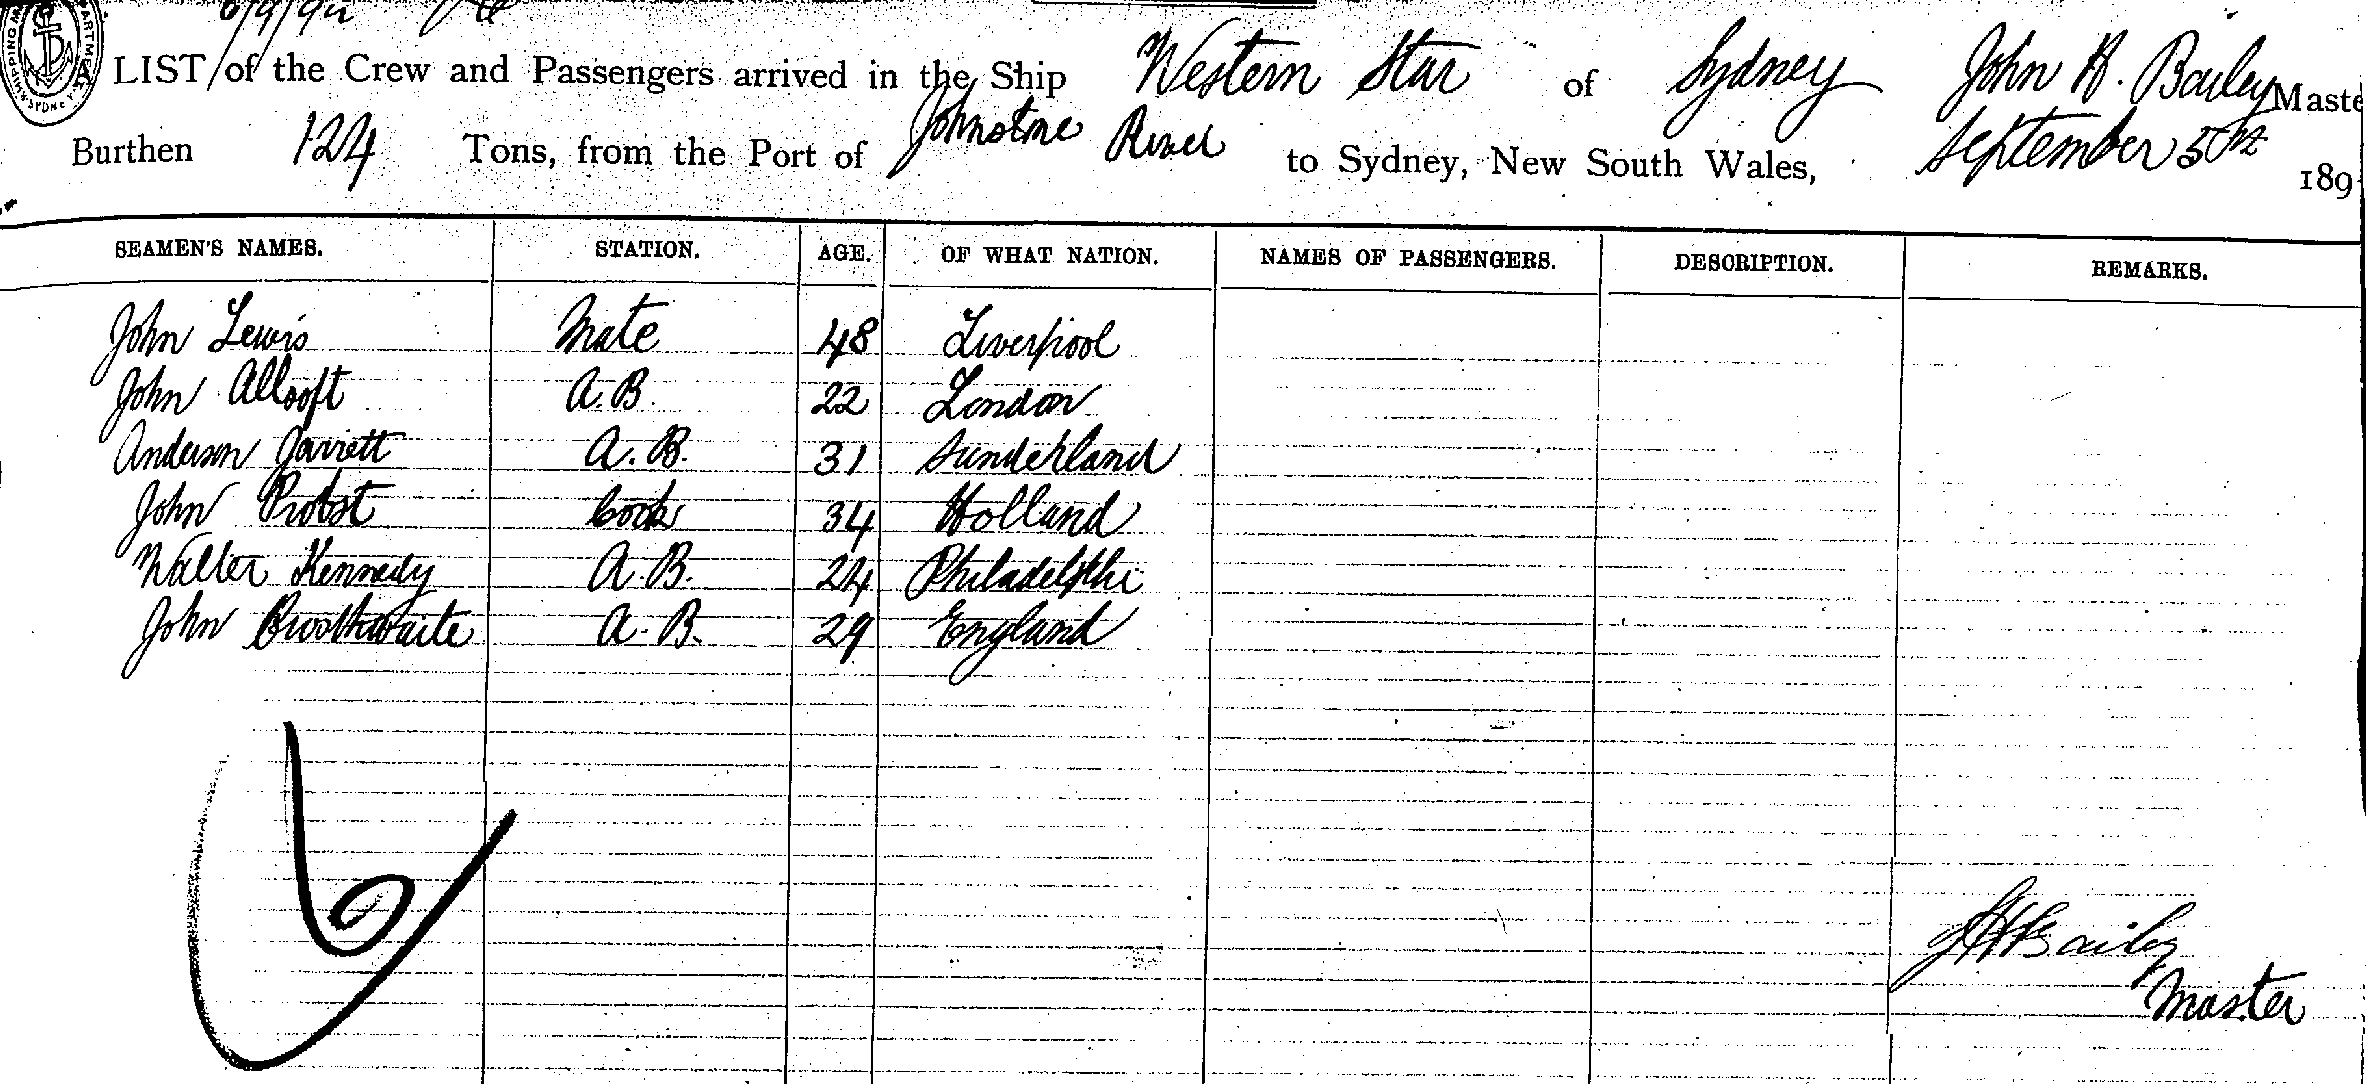 6/9/94
A LIST of the Crew and Passengers arrived in the Ship Western Star of Sydney John H. Bailey Maste
Burthen 124 Tons, from the Port of Johnstone River to Sydney, New South Wales, September 5th 189
SEAMEN'S NAMES. STATION. AGE. OF WHAT NATION. NAMES OF PASSENGERS. DESCRIPTION. REMARKS.
John Lewis Mate 48 Liverpool
John Allsoft A.B. 22 London
Anderson Garrett A.B. 31 Sunderland
John Probst Cook 34 Holland
Walter Kennedy A.B. 24 Philadelphi
John Broothwaite A.B. 29 England
JHBailey
Master